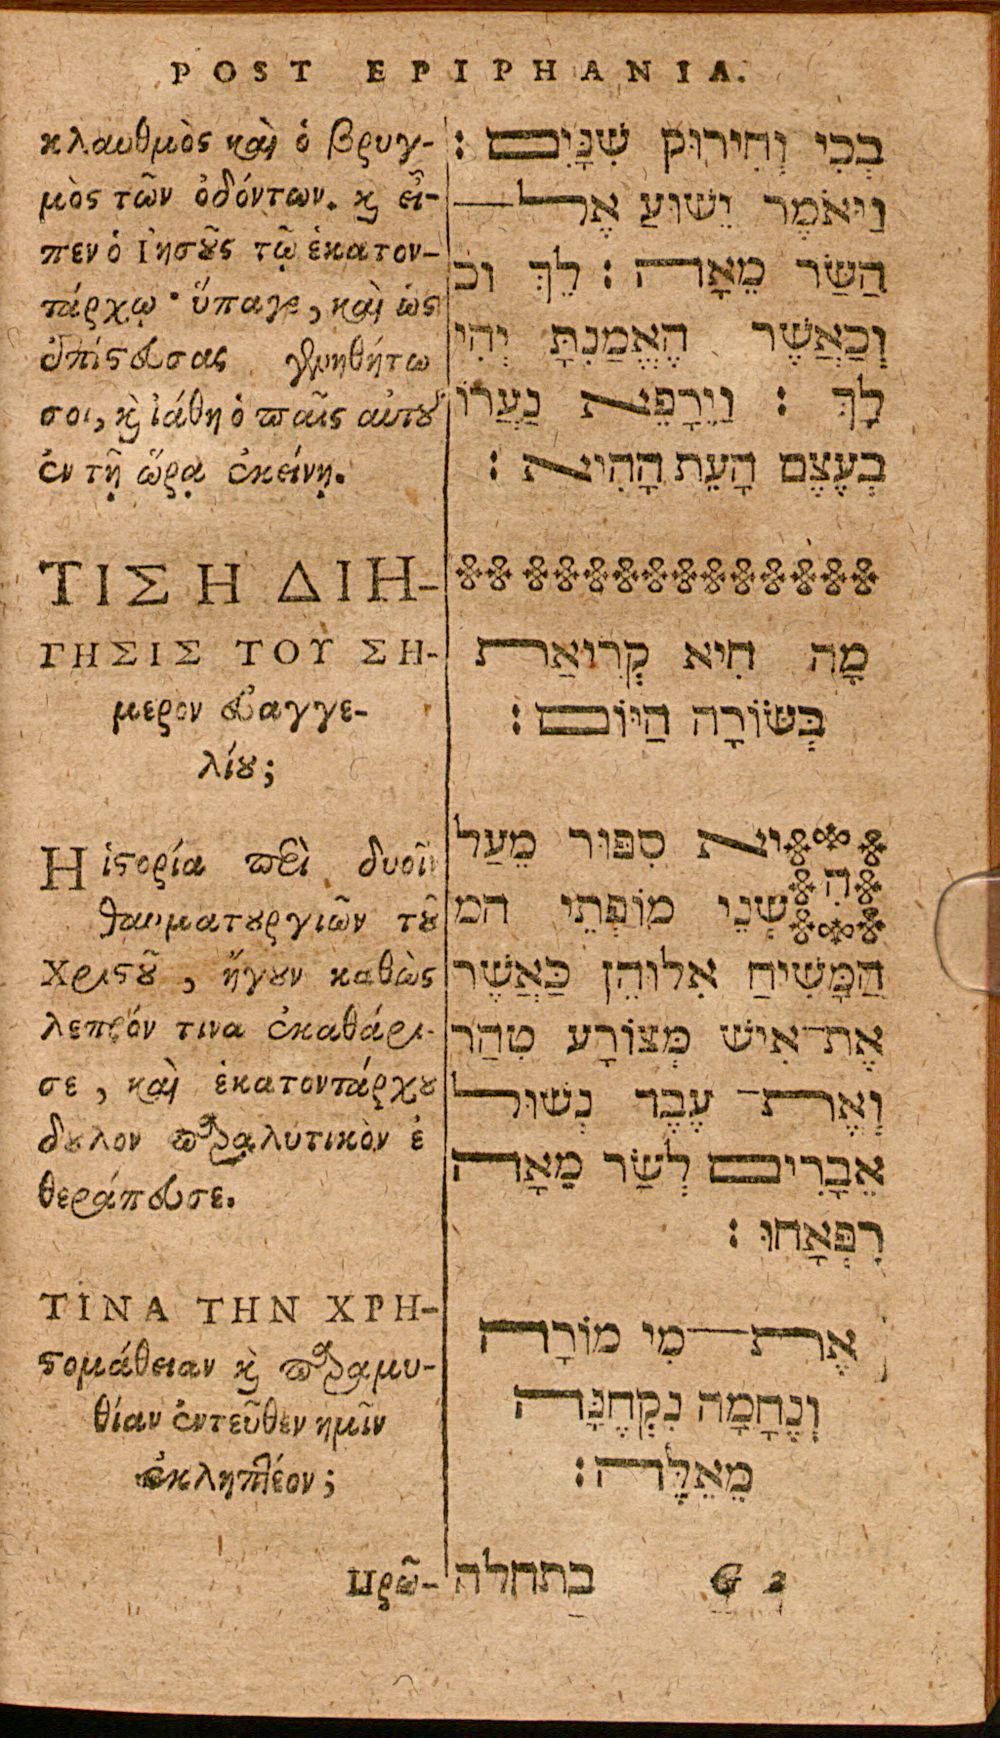 POST EPIPHANIA.
κλαυθμὸς καὶ ὁ βρυγ-
μὸς τῶν ὀδόντων. κ̀ εἶ-
πεν ὁ Ἰησοῦς τῷ ἑκατον-
τάρχῳ· ὕπαγε, καὶ ὡς
ἐπίστευσας γενηθήτω
σοι, κ̀ ἰάθη ὁ παῖς αὐτοῦ
ἐν τῇ ὥρᾳ ἐκείνῃ.
ΤΙΣ Η ΔΙΗ-
ΓΗΣΙΣ ΤΟΥ ΣΗ-
μερον εὐαγγε-
λίου;
Η ἱστορία περὶ δυοῖν
θαυματουργιῶν τοῦ
Χριστοῦ, ἤγουν καθὼς
λεπρόν τινα ἐκαθάρι-
σε, καὶ ἑκατοντάρχου
δουλον παραλυτικὸν ἐ
θεράπευσε.
ΤΙΝΑ ΤΗΝ ΧΡΗ-
στομάθειαν κ̀ παραμυ-
θίαν ἐντεῦθεν ημῖν
ἐκληπτέον;
Πρῶ-
בְּכִי וְחִירוּק שִׁנָּיִם :
וַיֹּאמֶר יֵשׁוּעַ אֶל—
הַשַּׂר מֵאָה : לֵךְ וכ
וְכַאֲשֶׁר הֶאֱמַנְתָּ יְהִי
לָךְ : וַיֵּרָפֵא נַעֲרוֹ
בְּעֶצֶם הָעֵת הָהִיא :
מָה הִיא קְרִיאַת
בְּשׂוֹרָה הַיּוֹם :
הִיא סִפּוּר מֵעַל
שְׁנֵי מוֹפְתֵי המ
הַמָּשִׁיחַ אִלּוּהֵן כַּאֲשֶׁר
אֶת־אִישׁ מְצוֹרָע טִהַר
וְאֶת־ עֶבֶד נְשׁוּל
אֵבָרִים לְשַׂר מֵאָה
רִפְּאָהוּ :
אֶת—מִי מוֹרָה
וְנֶחָמָה נִקְחֶנָּה
מֵאֵלֶּה :
בַתחלה
G 2